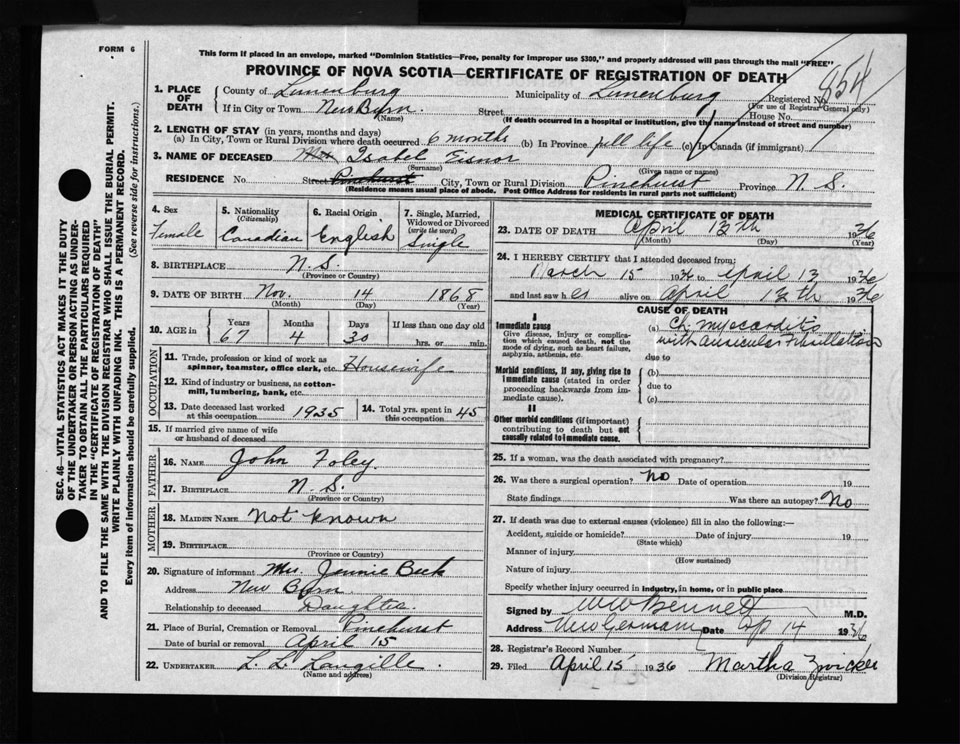 FORM 6
This form if placed in an envelope, marked "Dominion Statistics—Free, penalty for improper use $300," and properly addressed will pass through the mail "FREE"
PROVINCE OF NOVA SCOTIA—CERTIFICATE OF REGISTRATION OF DEATH
SEC. 46—VITAL STATISTICS ACT MAKES IT THE DUTY
OF THE UNDERTAKER OR PERSON ACTING AS UNDER-
TAKER TO OBTAIN ALL THE PARTICULARS REQUIRED
IN THE "CERTIFICATE OF REGISTRATION OF DEATH"
AND TO FILE THE SAME WITH THE DIVISION REGISTRAR WHO SHALL ISSUE THE BURIAL PERMIT.
WRITE PLAINLY WITH UNFADING INK. THIS IS A PERMANENT RECORD.
Every item of information should be carefully supplied. (See reverse side for instructions.)
1. PLACE OF DEATH
County of Lunenburg Municipality of Lunenburg Registered No. 854
(For use of Registrar General only)
If in City or Town New Burn Street House No.
(Name) (If death occurred in a hospital or institution, give the name instead of street and number)
2. LENGTH OF STAY (in years, months and days)
(a) In City, Town or Rural Division where death occurred 6 months (b) In Province full life (c) In Canada (if immigrant)
3. NAME OF DECEASED Isabel Eisnor
(Surname) (Given name or names)
RESIDENCE No. Street Pinehurst City, Town or Rural Division Pinehurst Province N. S.
(Residence means usual place of abode. Post Office Address for residents in rural parts not sufficient)
4. Sex
Female
5. Nationality
(Citizenship)
Canadian
6. Racial Origin
English
7. Single, Married,
Widowed or Divorced
(write the word)
Single
8. BIRTHPLACE N. S.
(Province or Country)
9. DATE OF BIRTH Nov. 14 1868
(Month) (Day) (Year)
10. AGE in
Years Months Days If less than one day old
67 4 30 hrs. or min.
OCCUPATION
11. Trade, profession or kind of work as
spinner, teamster, office clerk, etc. Housewife
12. Kind of industry or business, as cotton-
mill, lumbering, bank, etc.
13. Date deceased last worked
at this occupation 1935
14. Total yrs. spent in
this occupation 45
15. If married give name of wife
or husband of deceased
FATHER
16. NAME John Foley
17. BIRTHPLACE N. S.
(Province or Country)
MOTHER
18. MAIDEN NAME Not known
19. BIRTHPLACE
(Province or Country)
20. Signature of informant Mrs. Jennie Beck
Address New Burn
Relationship to deceased Daughter
21. Place of Burial, Cremation or Removal Pinehurst
Date of burial or removal April 15
22. UNDERTAKER L. L. Langille
(Name and address)
MEDICAL CERTIFICATE OF DEATH
23. DATE OF DEATH April 13th 1936
(Month) (Day) (Year)
24. I HEREBY CERTIFY that I attended deceased from:
March 15 1936 to April 13 1936
and last saw her alive on April 13th 1936
CAUSE OF DEATH
I
Immediate cause
Give disease, injury or complica-
tion which caused death, not the
mode of dying, such as heart failure,
asphyxia, asthenia, etc.
(a) Ch. myocarditis
with auricular fibrillation
due to
Morbid conditions, if any, giving rise to
immediate cause (stated in order
proceeding backwards from im-
mediate cause).
(b)
due to
(c)
II
Other morbid conditions (if important)
contributing to death but not
causally related to immediate cause.
25. If a woman, was the death associated with pregnancy?
26. Was there a surgical operation? No Date of operation 19
State findings Was there an autopsy? No
27. If death was due to external causes (violence) fill in also the following:—
Accident, suicide or homicide? Date of injury 19
(State which)
Manner of injury
(How sustained)
Nature of injury
Specify whether injury occurred in industry, in home, or in public place
Signed by Bennett M.D.
Address New Germany Date Ap 14 1936
28. Registrar's Record Number
29. Filed April 15 1936 Martha Zwicker
(Division Registrar)